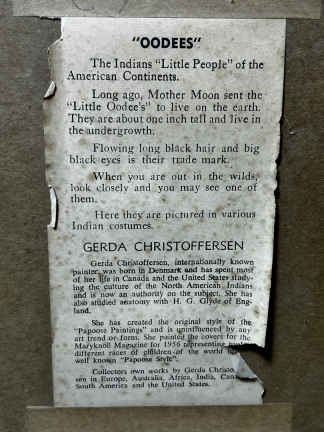 "OODEES"
The Indians "Little People" of the
American Continents.
Long ago, Mother Moon sent the
"Little Oodee's" to live on the earth.
They are about one inch tall and live in
the undergrowth.
Flowing long black hair and big
black eyes is their trade mark.
When you are out in the wilds,
look closely and you may see one of
them.
Here they are pictured in various
Indian costumes.
GERDA CHRISTOFFERSEN
Gerda Christoffersen, internationally known
painter, was born in Denmark and has spent most
of her life in Canada and the United States study-
ing the culture of the North American Indians
and is now an authority on the subject. She has
also studied anatomy with H. G. Glyde of Eng-
land.
She has created the original style of the
"Papoose Paintings" and is uninfluenced by any
art trend or form. She painted the covers for the
Maryknoll Magazine for 1956 representing
different races of children of the world
well known "Papoose Style".
Collectors own works by Gerda Christo
sen in Europe, Australia, Africa, India, Cana
South America and the United States.